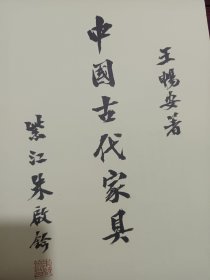 王暢安著
中國古代家具
紫江朱啟鈐